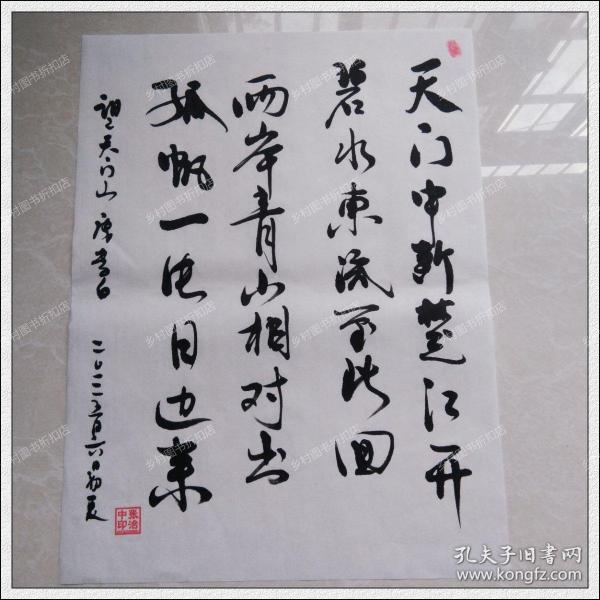 天门中断楚江开
碧水东流至此回
两岸青山相对出
孤帆一片日边来
望天门山 唐李白
二〇一二年五月六日初夏
张治中印
孔夫子旧书网
www.kongfz.com
乡村图书折扣店